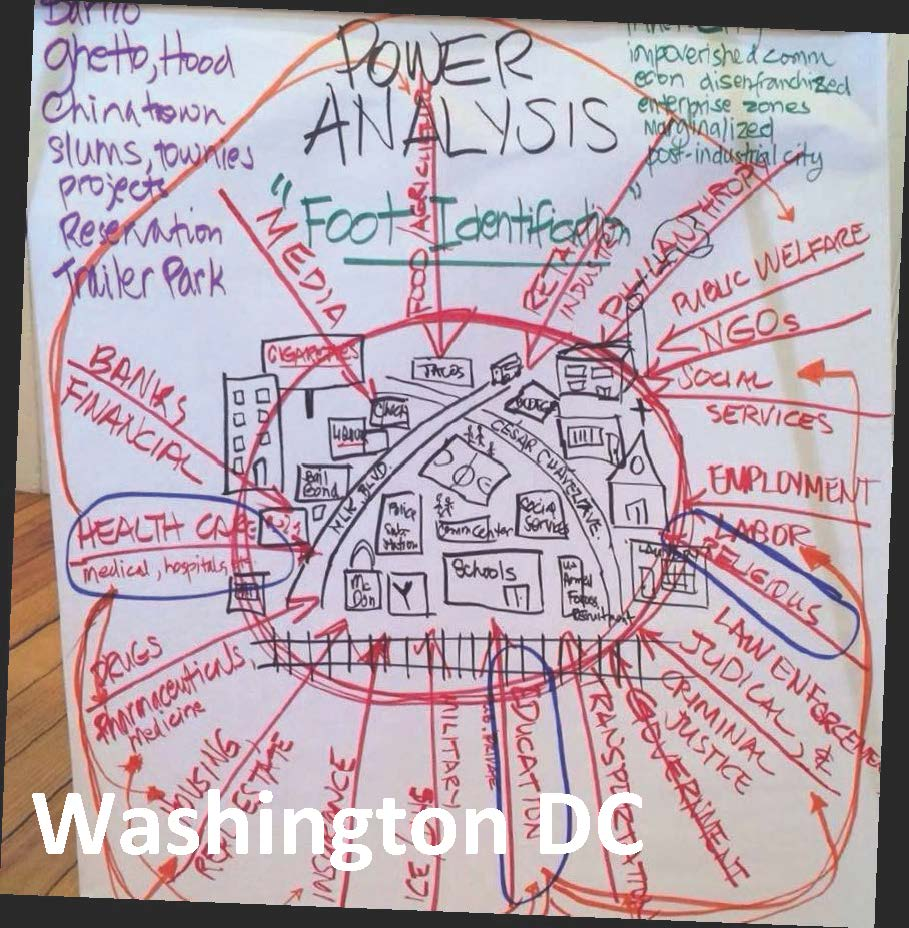 Barrio
Ghetto, Hood
Chinatown
Slums, townies
projects
Reservation
Trailer Park
POWER
ANALYSIS
impoverished comm
econ disenfranchized
enterprise zones
Marginalized
post-industrial city
"Foot Identification"
MEDIA
FOOD/AGRICULTURE
RETAIL
INDUSTRY
PHILANTHROP
PUBLIC WELFARE
NGOs
SOCIAL
SERVICES
EMPLOYMENT
LABOR
RELIGIOUS
LAW ENFORCEME
JUDICAL &
CRIMINAL
JUSTICE
GOVERNMENT
TRANSPORTATION
EDUCATION
MILITARY
INSURANCE
HOUSING
REAL ESTATE
DRUGS
Pharmaceuticals,
Medicine
HEALTH CARE
medical, hospitals,
BANKS
FINANCIAL
CIGARETTES
TACOS
Check
Liquor
Bail
Bond
MLK BLVD.
CESAR CHAVEZ AVE.
Police
Sub-
station
Comm Center
Social
Services
Mc
Don
Y
Schools
US
Armed
Forces
Recruitment
Washington DC